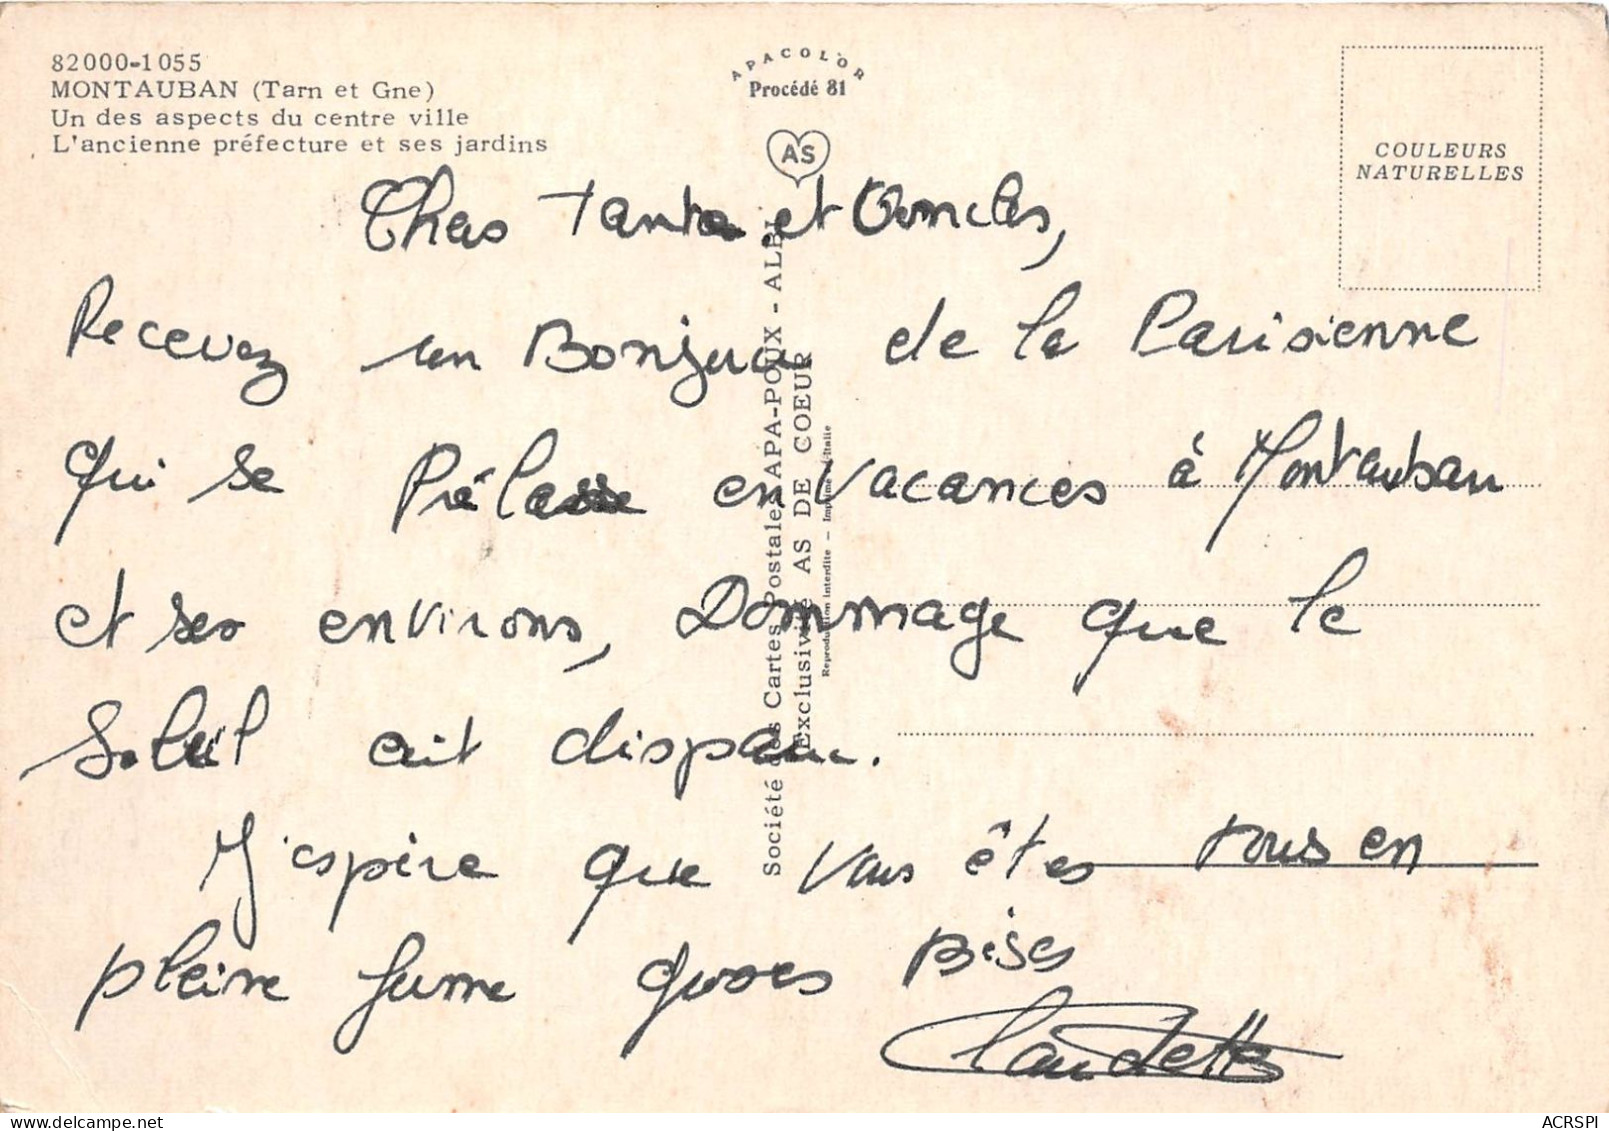 82000-1055
MONTAUBAN (Tarn et Gne)
Un des aspects du centre ville
L'ancienne préfecture et ses jardins
APACOLOR
Procédé 81
AS
COULEURS
NATURELLES
Société des Cartes Postales APA-POUX - ALBI
Exclusivité AS DE COEUR
Reproduction interdite — Imprimé en Italie
Chers Tante et Oncles,
Recevez un Bonjour de la Parisienne
qui se Prélasse en vacances à Montauban
et ses environs, Dommage que le
Soleil ait disparu.
J'espère que vous êtes tous en
pleine forme grosses Bises
Claudette
ACRSPI